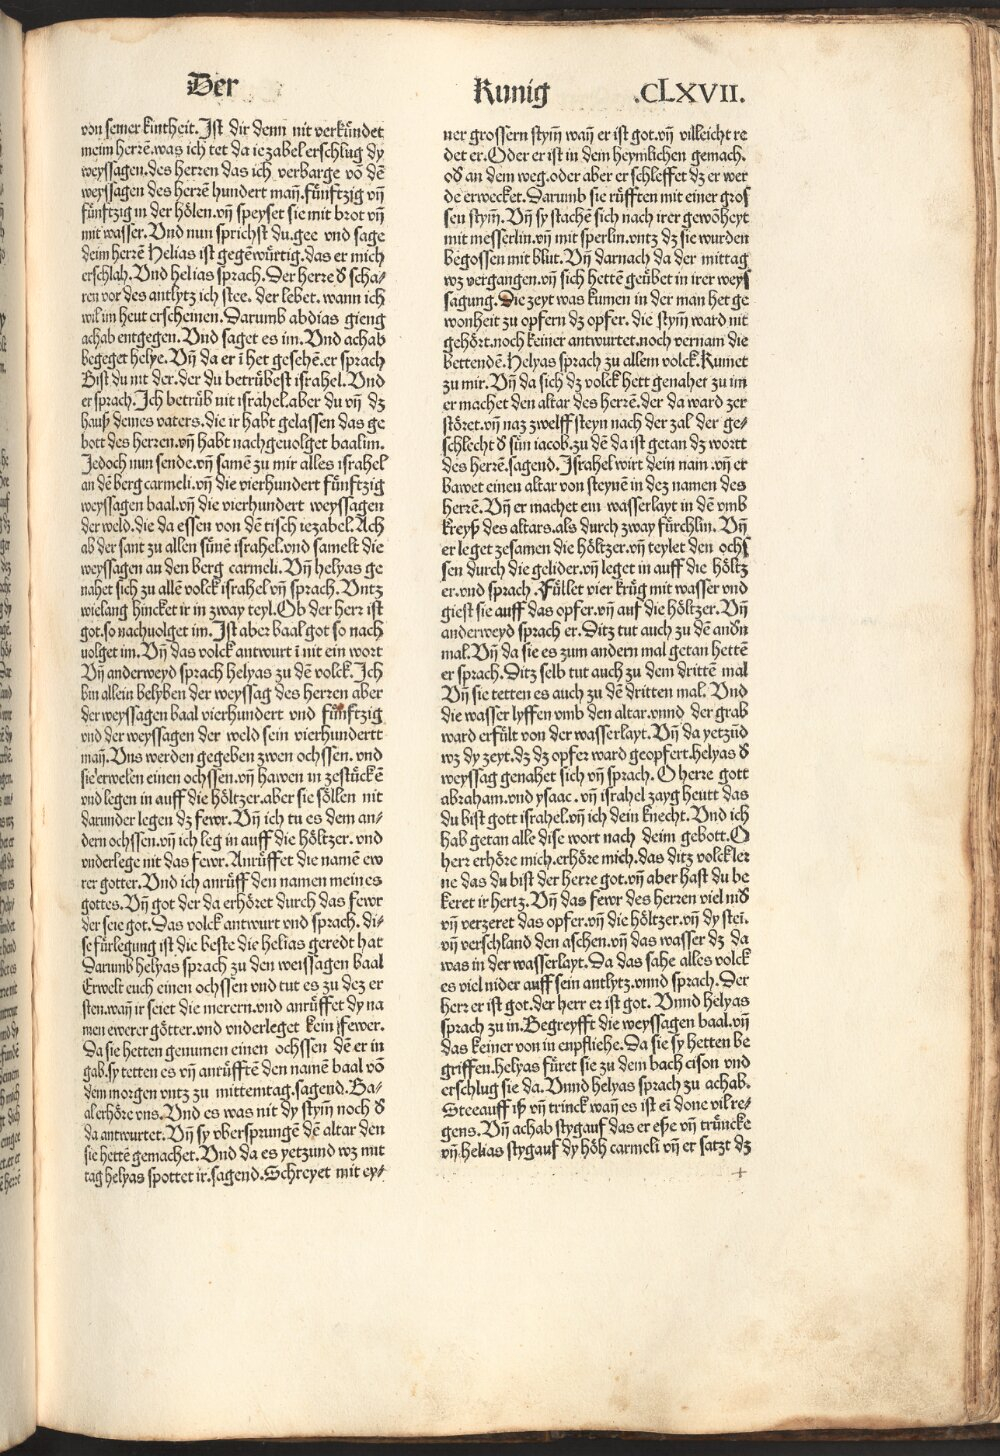 Der Kunig .CLXVII.
von seiner kintheit. Ist dir denn nit verkündet
meim herrē. was ich tet da iezabel erschlug dy
weyssagen. des herren das ich verbarge vō dē
weyssagen des herrē hundert man̄. fünftzig vn̄
fünftzig in der hölen. vn̄ speyset sie mit brot vn̄
mit wasser. Vnd nun sprichst du. gee vnd sage
deim herrē Helias ist gegēwürtig. das er mich
erschlah. Vnd helias sprach. Der herre d̄ scha-
ren vor des antlytz ich stee. der lebet. wann ich
wil im heut erscheinen. Darumb abdias gieng
achab entgegen. Vnd saget es im. Vnd achab
begeget helye. Vn̄ da er ī het gesehē. er sprach
Bist du nit der. der du betrübest israhel. Vnd
er sprach. Ich betrüb nit israhel. aber du vn̄ dz
hauß deines vaters. die ir habt gelassen das ge
bott des herren. vn̄ habt nachgeuolget baalim.
Jedoch nun sende. vn̄ samē zu mir alles israhel
an dē berg carmeli. vn̄ die vierhundert fünftzig
weyssagen baal. vn̄ die vierhundert weyssagen
der weld. die da essen von dē tisch iezabel. Ach
ab der sant zu allen sünē israhel. vnd samelt die
weyssagen an den berg carmeli. Vn̄ helyas ge
nahet sich zu allē volck israhel vn̄ sprach. Vntz
wielang hincket ir in zway teyl. Ob der herr ist
got. so nachuolget im. Ist aber baal got so nach
uolget im. Vn̄ das volck antwurt ī nit ein wort
Vn̄ anderweyd sprach helyas zu dē volck. Ich
bin allein belyben der weyssag des herren aber
der weyssagen baal vierhundert vnd fünftzig
vnd der weyssagen der weld sein vierhundertt
man̄. Vns werden gegeben zwen ochssen. vnd
sie erwelen einen ochssen. vn̄ hawen in zestückē
vnd legen in auff die höltzer. aber sie söllen nit
darunder legen dz fewr. Vn̄ ich tu es dem an-
dern ochssen. vn̄ ich leg in auff die höltzer. vnd
vnderlege nit das fewr. Anrüffet die namē ew
rer gotter. Vnd ich anrüff den namen meines
gottes. Vn̄ got der da erhöret durch das fewr
der seie got. Das volck antwurt vnd sprach. di-
se fürlegung ist die beste die helias geredt hat
Darumb helyas sprach zu den weissagen baal
Erwelt euch einen ochssen vnd tut es zu dez er
sten. wan̄ ir seiet die merern. vnd anrüffet dy na
men ewerer götter. vnd vnderleget kein fewer.
Da sie hetten genumen einen ochssen dē er in
gab. sy tetten es vn̄ anrüfftē den namē baal vō
dem morgen vntz zu mittemtag. sagend. Ba-
al erhöre vns. Vnd es was nit dy stym̄ noch d̄
da antwurtet. Vn̄ sy vbersprungē dē altar den
sie hettē gemachet. Vnd da es yetzund wz mit
tag helyas spottet ir. sagend. Schreyet mit ey-
ner grossern stym̄ wan̄ er ist got. vn̄ villeicht re
det er. Oder er ist in dem heymlichen gemach.
od̄ an dem weg. oder aber er schleffet dz er wer
de erwecket. Darumb sie rüfften mit einer gros
sen stym̄. Vn̄ sy stachē sich nach irer gewōheyt
mit messerlin. vn̄ mit sperlin. vntz dz sie wurden
begossen mit blut. Vn̄ darnach da der mittag
wz vergangen. vn̄ sich hettē geübet in irer weys
sagung. Die zeyt was kumen in der man het ge
wonheit zu opfern dz opfer. die stym̄ ward nit
gehört. noch keiner antwurtet. noch vernam die
bettendē. Helyas sprach zu allem volck. Kumet
zu mir. Vn̄ da sich dz volck hett genahet zu im
er machet den altar des herrē. der da ward zer
störet. vn̄ naz zwelff steyn nach der zal der ge-
schlecht d̄ sün iacob. zu dē da ist getan dz wortt
des herrē. sagend. Israhel wirt dein nam. vn̄ er
bawet einen altar von steynē in dez namen des
herrē. Vn̄ er machet ein wasserlayt in dē vmb
kreyß des altars. als durch zway fürchlin. Vn̄
er leget zesamen die höltzer. vn̄ teylet den ochs
sen durch die gelider. vn̄ leget in auff die höltz
er. vnd sprach. Füllet vier krüg mit wasser vnd
giest sie auff das opfer. vn̄ auf die höltzer. Vn̄
anderweyd sprach er. Ditz tut auch zu dē and̄n
mal. Vn̄ da sie es zum andern mal getan hettē
er sprach. Ditz selb tut auch zu dem drittē mal
Vn̄ sie tetten es auch zu dē dritten mal. Vnd
die wasser lyffen vmb den altar. vnnd der grab
ward erfült von der wasserlayt. Vn̄ da yetzūd
wz dy zeyt. dz dz opfer ward geopfert. helyas d̄
weyssag genahet sich vn̄ sprach. O herre gott
abraham. vnd ysaac. vn̄ israhel zayg heutt das
du bist gott israhel. vn̄ ich dein knecht. Vnd ich
hab getan alle dise wort nach deim gebott. O
herr erhöre mich. erhöre mich. das ditz volck ler
ne das du bist der herre got. vn̄ aber hast du be
keret ir hertz. Vn̄ das fewr des herren viel nid̄
vn̄ verzeret das opfer. vn̄ die höltzer. vn̄ dy stei.
vn̄ verschland den aschen. vn̄ das wasser dz da
was in der wasserlayt. Da das sahe alles volck
es viel nider auff sein antlytz. vnnd sprach. Der
herr er ist got. der herr er ist got. Vnnd helyas
sprach zu in. Begreyfft die weyssagen baal. vn̄
das keiner von in enpfliehe. Da sie sy hetten be
griffen. helyas füret sie zu dem bach cison vnd
erschlug sie da. Vnnd helyas sprach zu achab.
Steeauff iß vn̄ trinck wan̄ es ist eī done vil re-
gens. Vn̄ achab stygauf das er eße vn̄ trüncke
vn̄. helias stygauf dy höh carmeli vn̄ er satzt dz